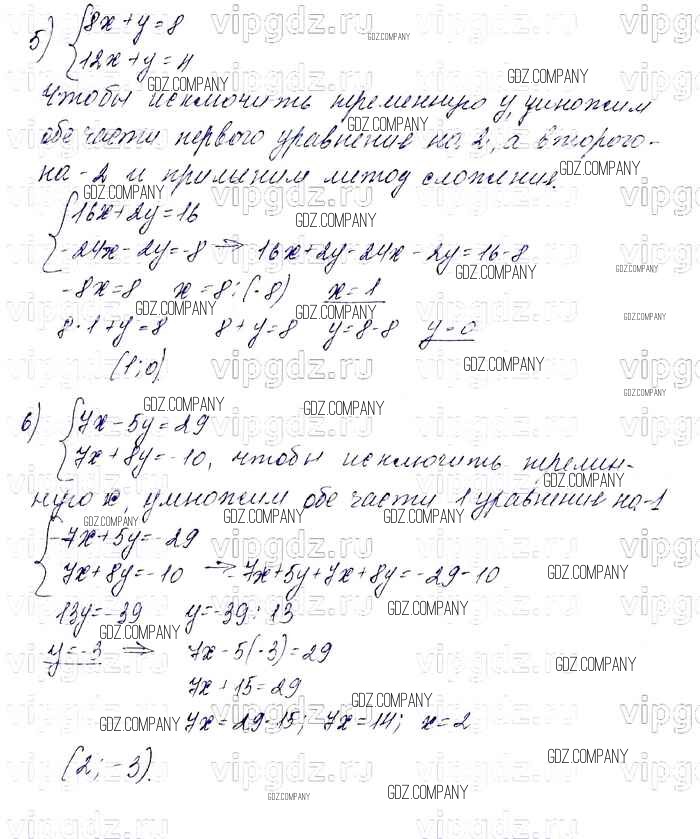 5) { 8x + y = 8
12x + y = 4
Чтобы исключить переменную y, умножим
обе части первого уравнение на 2, а второго -
на -2 и применим метод сложения.
{ 16x + 2y = 16
-24x - 2y = -8 → 16x + 2y - 24x - 2y = 16 - 8
-8x = 8 x = 8 : (-8) x = 1
8 · 1 + y = 8 8 + y = 8 y = 8 - 8 y = 0
(1; 0)
6) { 7x - 5y = 29
7x + 8y = -10, чтобы исключить перемен-
ную x, умножим обе части 1 уравнение на -1
{ -7x + 5y = -29
7x + 8y = -10 → -7x + 5y + 7x + 8y = -29 - 10
13y = -39 y = -39 : 13
y = -3 ⇒ 7x - 5(-3) = 29
7x + 15 = 29
7x = 29 - 15; 7x = 14; x = 2
(2; -3).
GDZ.COMPANY
vipgdz.ru